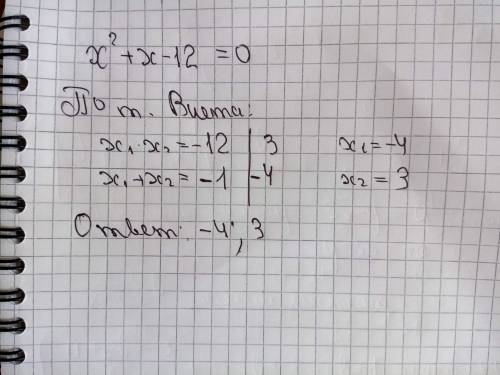 x² + x - 12 = 0
По т. Виета:
x₁ · x₂ = -12 | 3 x₁ = -4
x₁ + x₂ = -1 | -4 x₂ = 3
Ответ: -4; 3